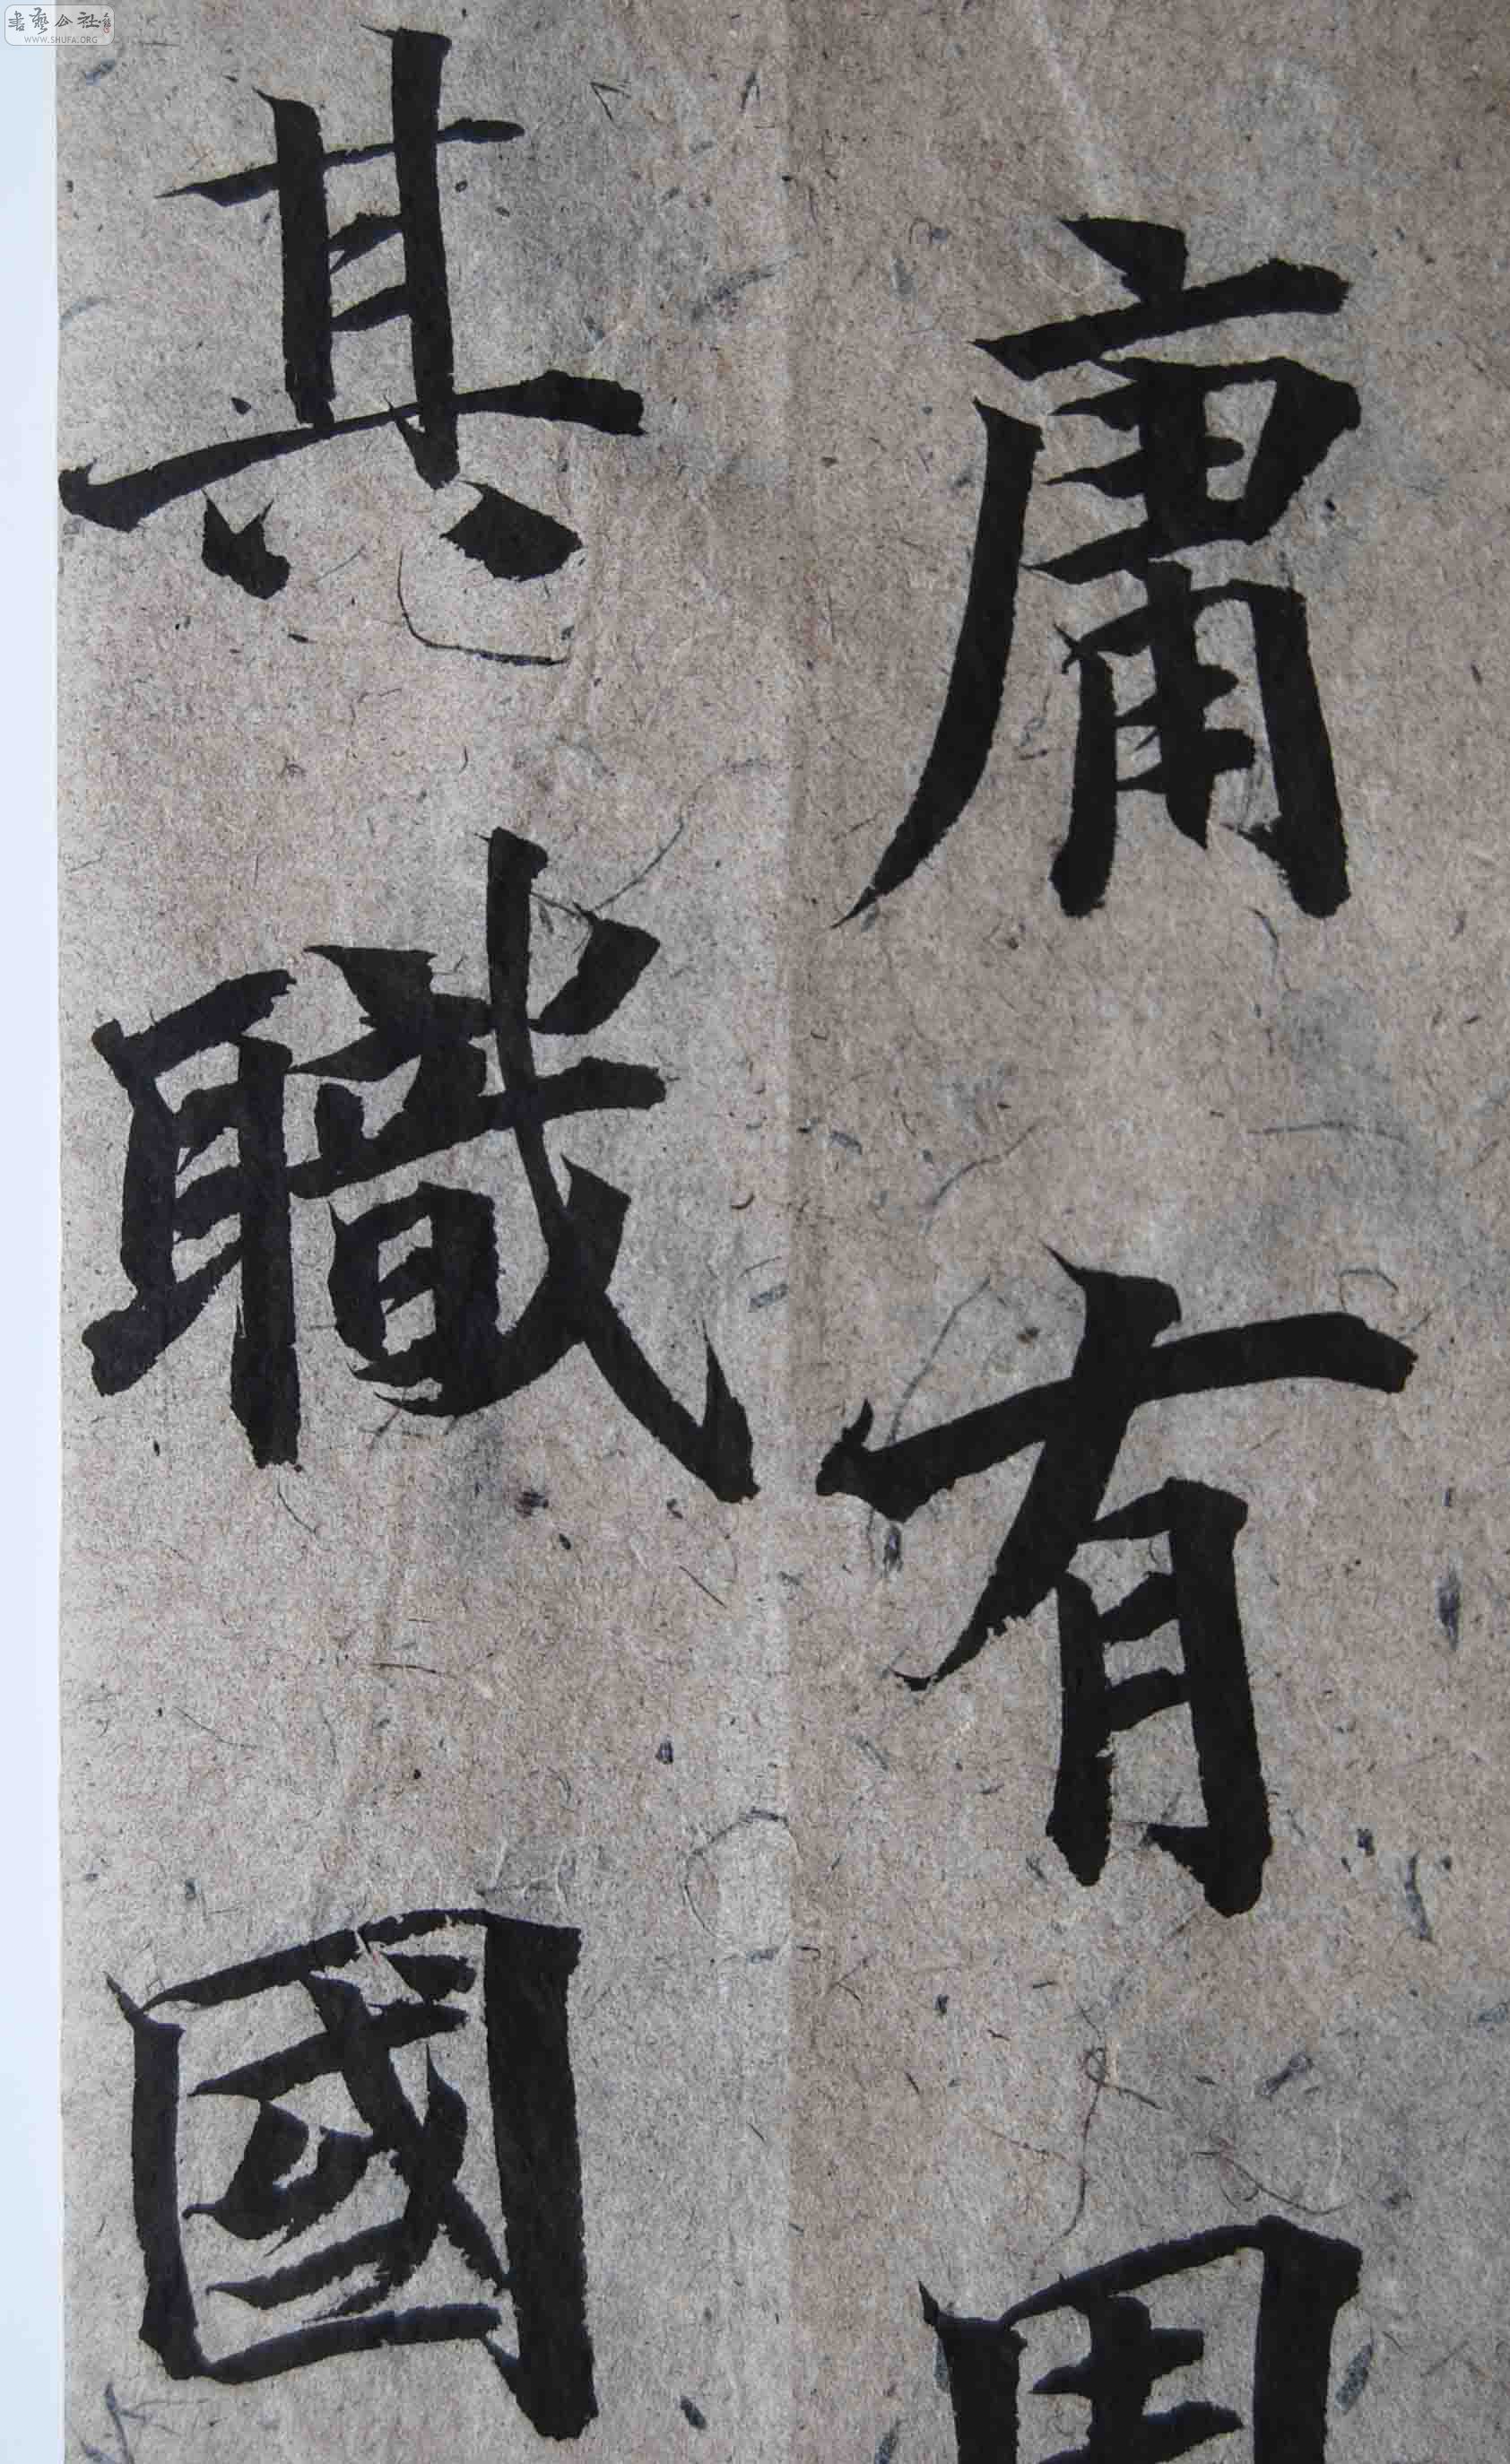 書藝公社
WWW.SHUFA.ORG
庸有周
其職國